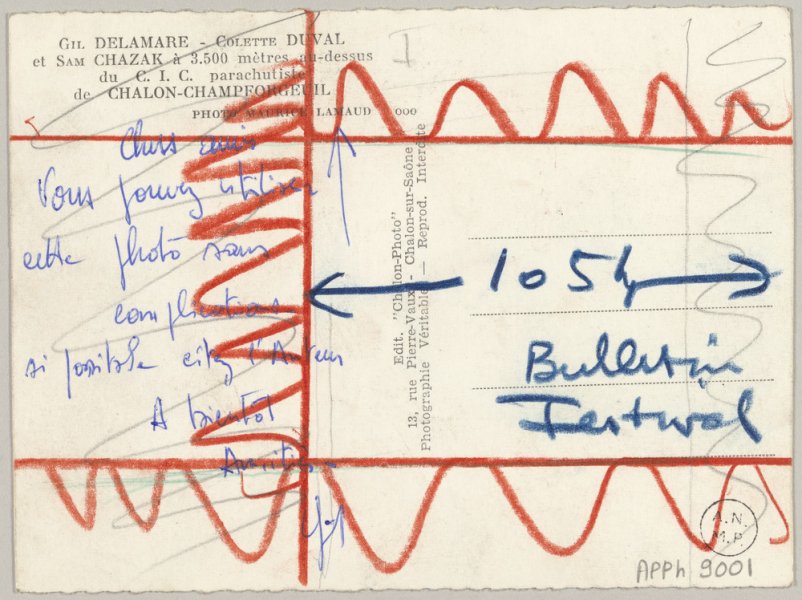 GIL DELAMARE - COLETTE DUVAL
et SAM CHAZAK à 3.500 mètres au-dessus
du C. I. C. parachutiste
de CHALON-CHAMPFORGEUIL
PHOTO MAURICE LAMAUD 000
I
Chers amis
Vous pouvez utiliser
cette photo sans
complications
si possible citez l'Auteur
A bientôt
Amitiés
Edit. "Chalon-Photo"
13, rue Pierre-Vaux - Chalon-sur-Saône
Photographie Véritable — Reprod. Interdite
105
Bulletin
Festival
A.N.
M.P.
APPh 9001